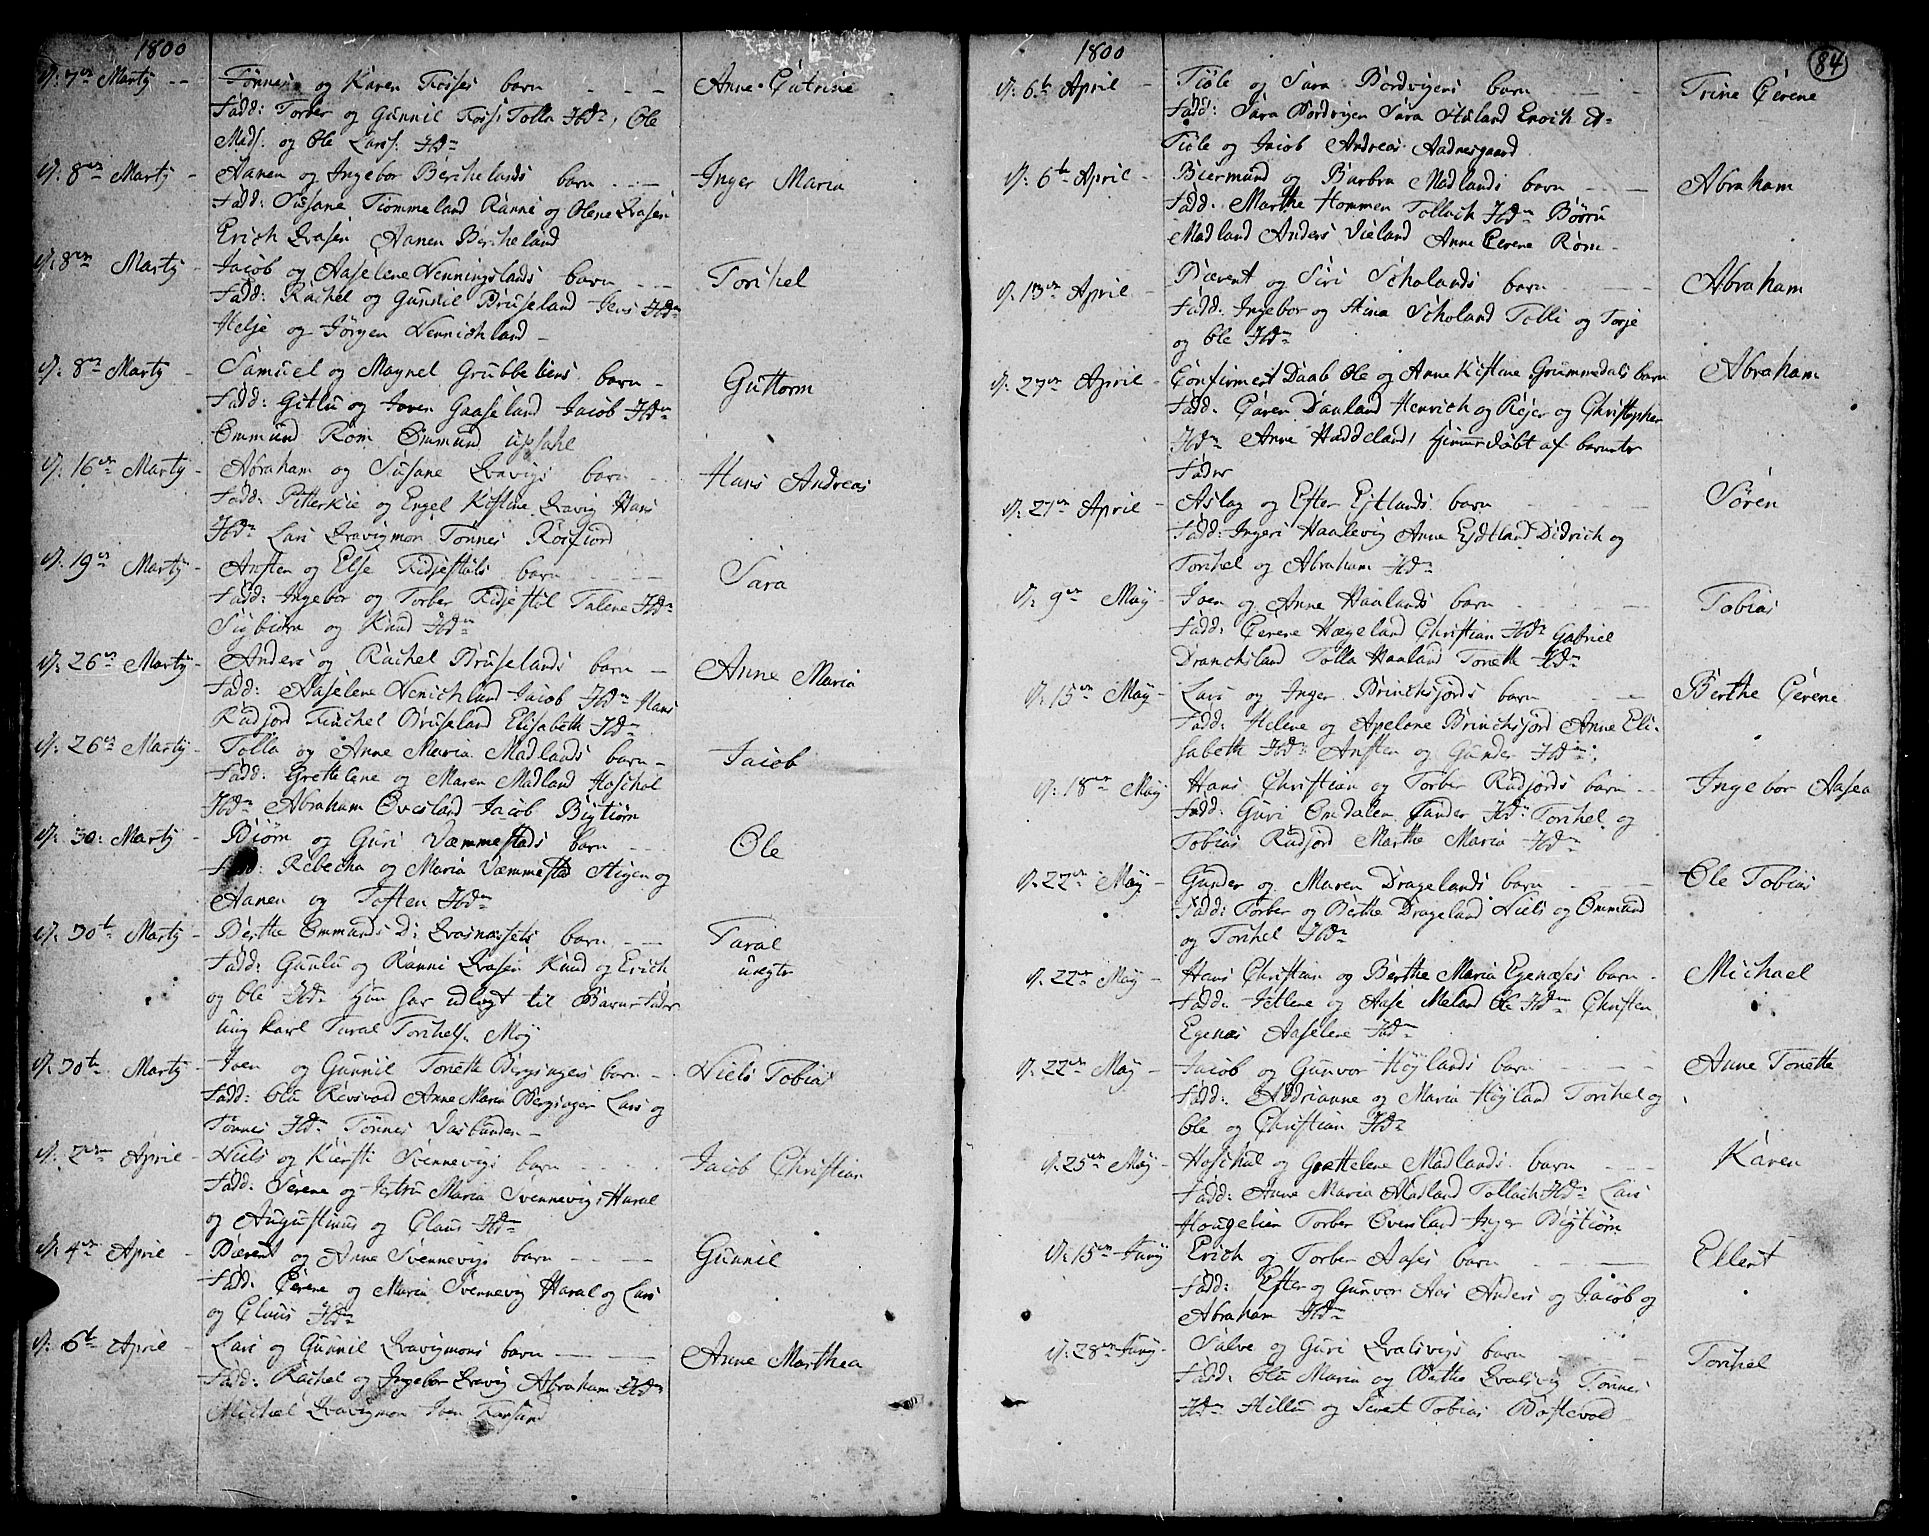 1800
d: 7de Martÿ -- Tønnes og Karen Fosses barn - - - Anne Catrine
Fadd: Torber og Gunnil Foss Tolla Ibdm, Ole
Mads. og Ole Larss. Ibdm
d: 8de Martÿ - Aanen og Ingebor Berchelands barn - - - Inger Maria
Fadd: Susane Tiommeland Ranni og Olene Qvasen
Erich Qvasen Aanen Bercheland
d: 8de Martÿ - Jacob og Aaselene Henningslands barn - - Torchel
Fadd: Rachel og Gunnil Bruseland Jens Ibdm
Helje og Jörgen Hennichland -
d: 8de Martÿ - Samuel og Magnel Grubbeliens barn - Guttorm
Fadd: Gitlu og Joren Gaaseland Jacob Ibdm
Ommund Rom Ommund Upsahl
d: 16de Martÿ - Abraham og Susane Qvavigs barn - Hans Andreas
Fadd: Engel Kistine Qvavig Hans
Ibdm Lars Qvavigmon Tønnes Rosfiord
d: 19de Martÿ - Ansten og Else Fidjestøls barn - - - Sara
Fadd: Ingebor og Torber Fidjestøl Talene Ibdm
Sigbiørn og Knud Ibdm
d: 26de Martÿ - Anders og Rachel Bruselands barn - Anne Maria
Fadd: Aaselene Henichland Jacob Ibdm Hans
Rudjord Tinchel Bruseland Elisabeth Ibdm
d: 26de Martÿ - Tolla og Anne Maria Madlands barn - Jacob
Fadd: Grettelene og Maren Madland Hoschol
Ibdm Abraham Øvesland Jacob Bigtiørn
d: 30: Martÿ - Biørn og Guri Væmmestads barn - - - Ole
Fadd: Rebecha og Maria Væmmestad Stigen og
Aanen og Toften Ibdm
d: 30te Martÿ - Berthe Ommunds D: Qvasnæssets barn - - Taral
Fadd: Gunlu og Ranni Qvasen Knud og Erich uægte
og Ole Ibdm hun har udlagt til Barne-fader
ung karl Taral Torchels. Moÿ
d: 30te Martÿ - Joen og Gunnil Tonette Bergsagers barn - Niels Tobias
Fadd: Olu Røvsvold Anne Maria Bergsager Lars og
Tønnes Ibdm Tønnes Vasbunden -
d: 2den April - Niels og Kiersti Svennevigs barn - - - Jacob Christian
Fadd: Serene og Maria Svennevig Haral
og Augustinus og Claus Ibdm
d: 4de April - Bærent og Anne Svennevigs barn - - - Gunnil
Fadd: Cerene og Maria Svennevig Haral og Lars
og Claus Ibdm
d: 6te April - Lars og Gunnil Qvavigmons barn - - - Anne Marthea
Fadd: Rachel og Ingebor Qvavig Abraham Ibdm
Michel Qvavigmon Iver
1800
84
d: 6te April - Tiøle og Sara Bordvigens barn - - Trine Cerene
Fadd: Sara Bordvigen Sara Enoch
Tiøle og Jacob Andreas Aadnesgaard
d: 6te April - Biermund og Barbra Madlands barn - - Abraham
Fadd: Marthe Hommen Tollach Ibdm Børru
Madland Anders Vieland Anne Cerene Rom -
d: 13de April - Bærent og Siri Scholands barn - - Abraham
Fadd: Ingebor og Stina Scholand Tolli og Torje
og Ole Ibdm
d: 27de April - Confirmert Daab Ole og Anne Kistine Grummedals barn Abraham
Fadd: Caren Dauland Henrich og Rejer og Christopher
Ibdm Anne Haddeland, hjemmedøbt af barnets
Fader
d: 27de April - Aslag og Efter Eftlands barn - - - Søren
Fadd: Ingeri Haalevig Anne Eftland Didrich og
Torchel og Abraham Ibdm
d: 9de Maÿ - Joen og Anne Haalands barn - - - Tobias
Fadd: Cerene Hægeland Christian Ibdm Gabriel
Drancksland Tolla Haaland Tonette Ibdm
d: 15de Maÿ - Lars og Inger Brinchsjords barn - - Berthe Cerene
Fadd: Helene og Apelone Brinchsjord Anne Eli-
sabeth Ibdm Ansten og Gunder Ibdm:
d: 18de Maÿ Hans Christian og Torber Rudjords barn - - Ingebor Aasea
Fadd: Guri Omdalen Gunder Ibdm Torchel og
Tobias Rudjord Marthe Maria Ibdm
d: 22de Maÿ - Gunder og Maren Dragelands barn - - Ole Tobias
Fadd: Torber og Berthe Drageland Niels og Ommund
og Torchel Ibdm
d: 22de Maÿ - Hans Christian og Berthe Maria Egenæses barn - Michael
Fadd: Jetlene og Aase Meland Ole Ibdm Christen
Egenæs Aaselene Ibdm
d: 22de Maÿ - Jacob og Gunvor Høÿlands barn - - - Anne Tonette
Fadd: Addrianne og Maria Høÿland Torchel og
Ole og Christian Ibdm
d: 25de Maÿ - Hoschol og Grættelene Madlands barn - - Karen
Fadd: Anne Maria Madland Tollach Ibdm Lars
Hougelien Torber Øvesland Inger Bigtiørn
d: 15de Junÿ Erich og Torber Aases barn - - - Ellert
Fadd: Efter og Gunvor Aas Anders og Jacob og
Abraham Ibdm
d: 28de Junÿ - Salve og Guri Qvalsvigs barn - - Torchel
Fadd: Olu Maria og Berthe Qvalsvig Tønnes
Ibdm Stillu og Sivert Tobias Bostevold